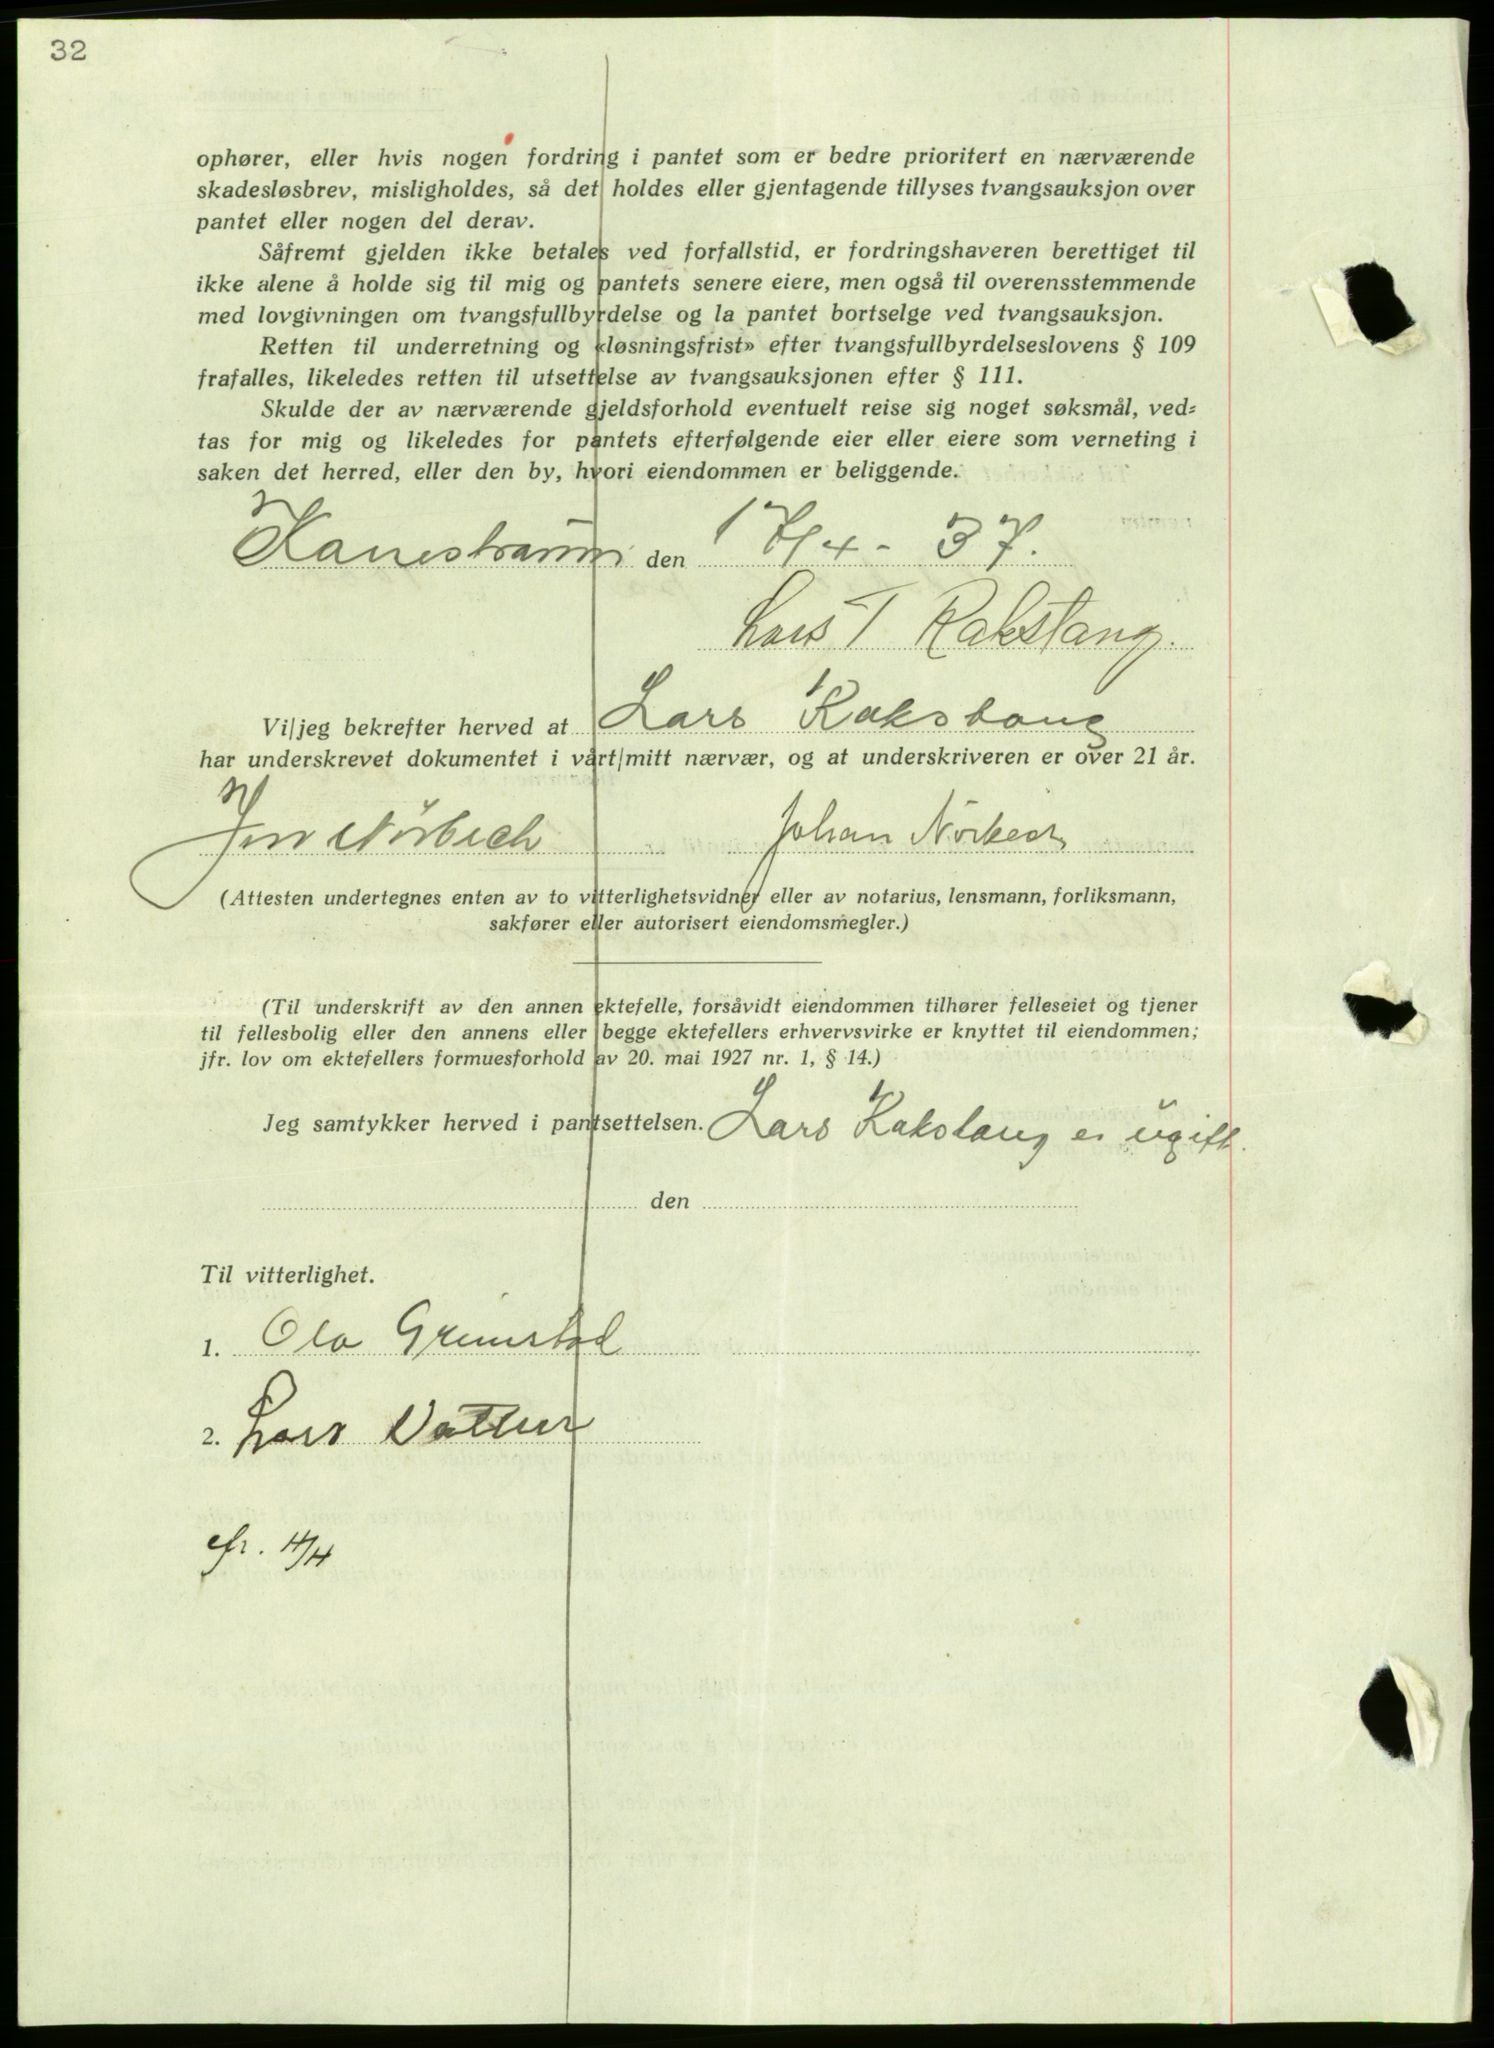 32
ophører, eller hvis nogen fordring i pantet som er bedre prioritert en nærværende
skadesløsbrev, misligholdes, så det holdes eller gjentagende tillyses tvangsauksjon over
pantet eller nogen del derav.
Såfremt gjelden ikke betales ved forfallstid, er fordringshaveren berettiget til
ikke alene å holde sig til mig og pantets senere eiere, men også til overensstemmende
med lovgivningen om tvangsfullbyrdelse og la pantet bortselge ved tvangsauksjon.
Retten til underretning og «løsningsfrist» efter tvangsfullbyrdelseslovens § 109
frafalles, likeledes retten til utsettelse av tvangsauksjonen efter § 111.
Skulde der av nærværende gjeldsforhold eventuelt reise sig noget søksmål, ved-
tas for mig og likeledes for pantets efterfølgende eier eller eiere som verneting i
saken det herred, eller den by, hvori eiendommen er beliggende.
Kanestraum den 17/4 - 37.
Lars T Rakstang.
Vi/jeg bekrefter herved at Lars Rakstang
har underskrevet dokumentet i vårt/mitt nærvær, og at underskriveren er over 21 år.
Nörbech Johan Nörbech
(Attesten undertegnes enten av to vitterlighetsvidner eller av notarius, lensmann, forliksmann,
sakfører eller autorisert eiendomsmegler.)
(Til underskrift av den annen ektefelle, forsåvidt eiendommen tilhører felleseiet og tjener
til fellesbolig eller den annens eller begge ektefellers erhvervsvirke er knyttet til eiendommen;
jfr. lov om ektefellers formuesforhold av 20. mai 1927 nr. 1, § 14.)
Jeg samtykker herved i pantsettelsen. Lars Rakstang er ugift.
den
Til vitterlighet.
1. Ola Grimstad
2. Lars